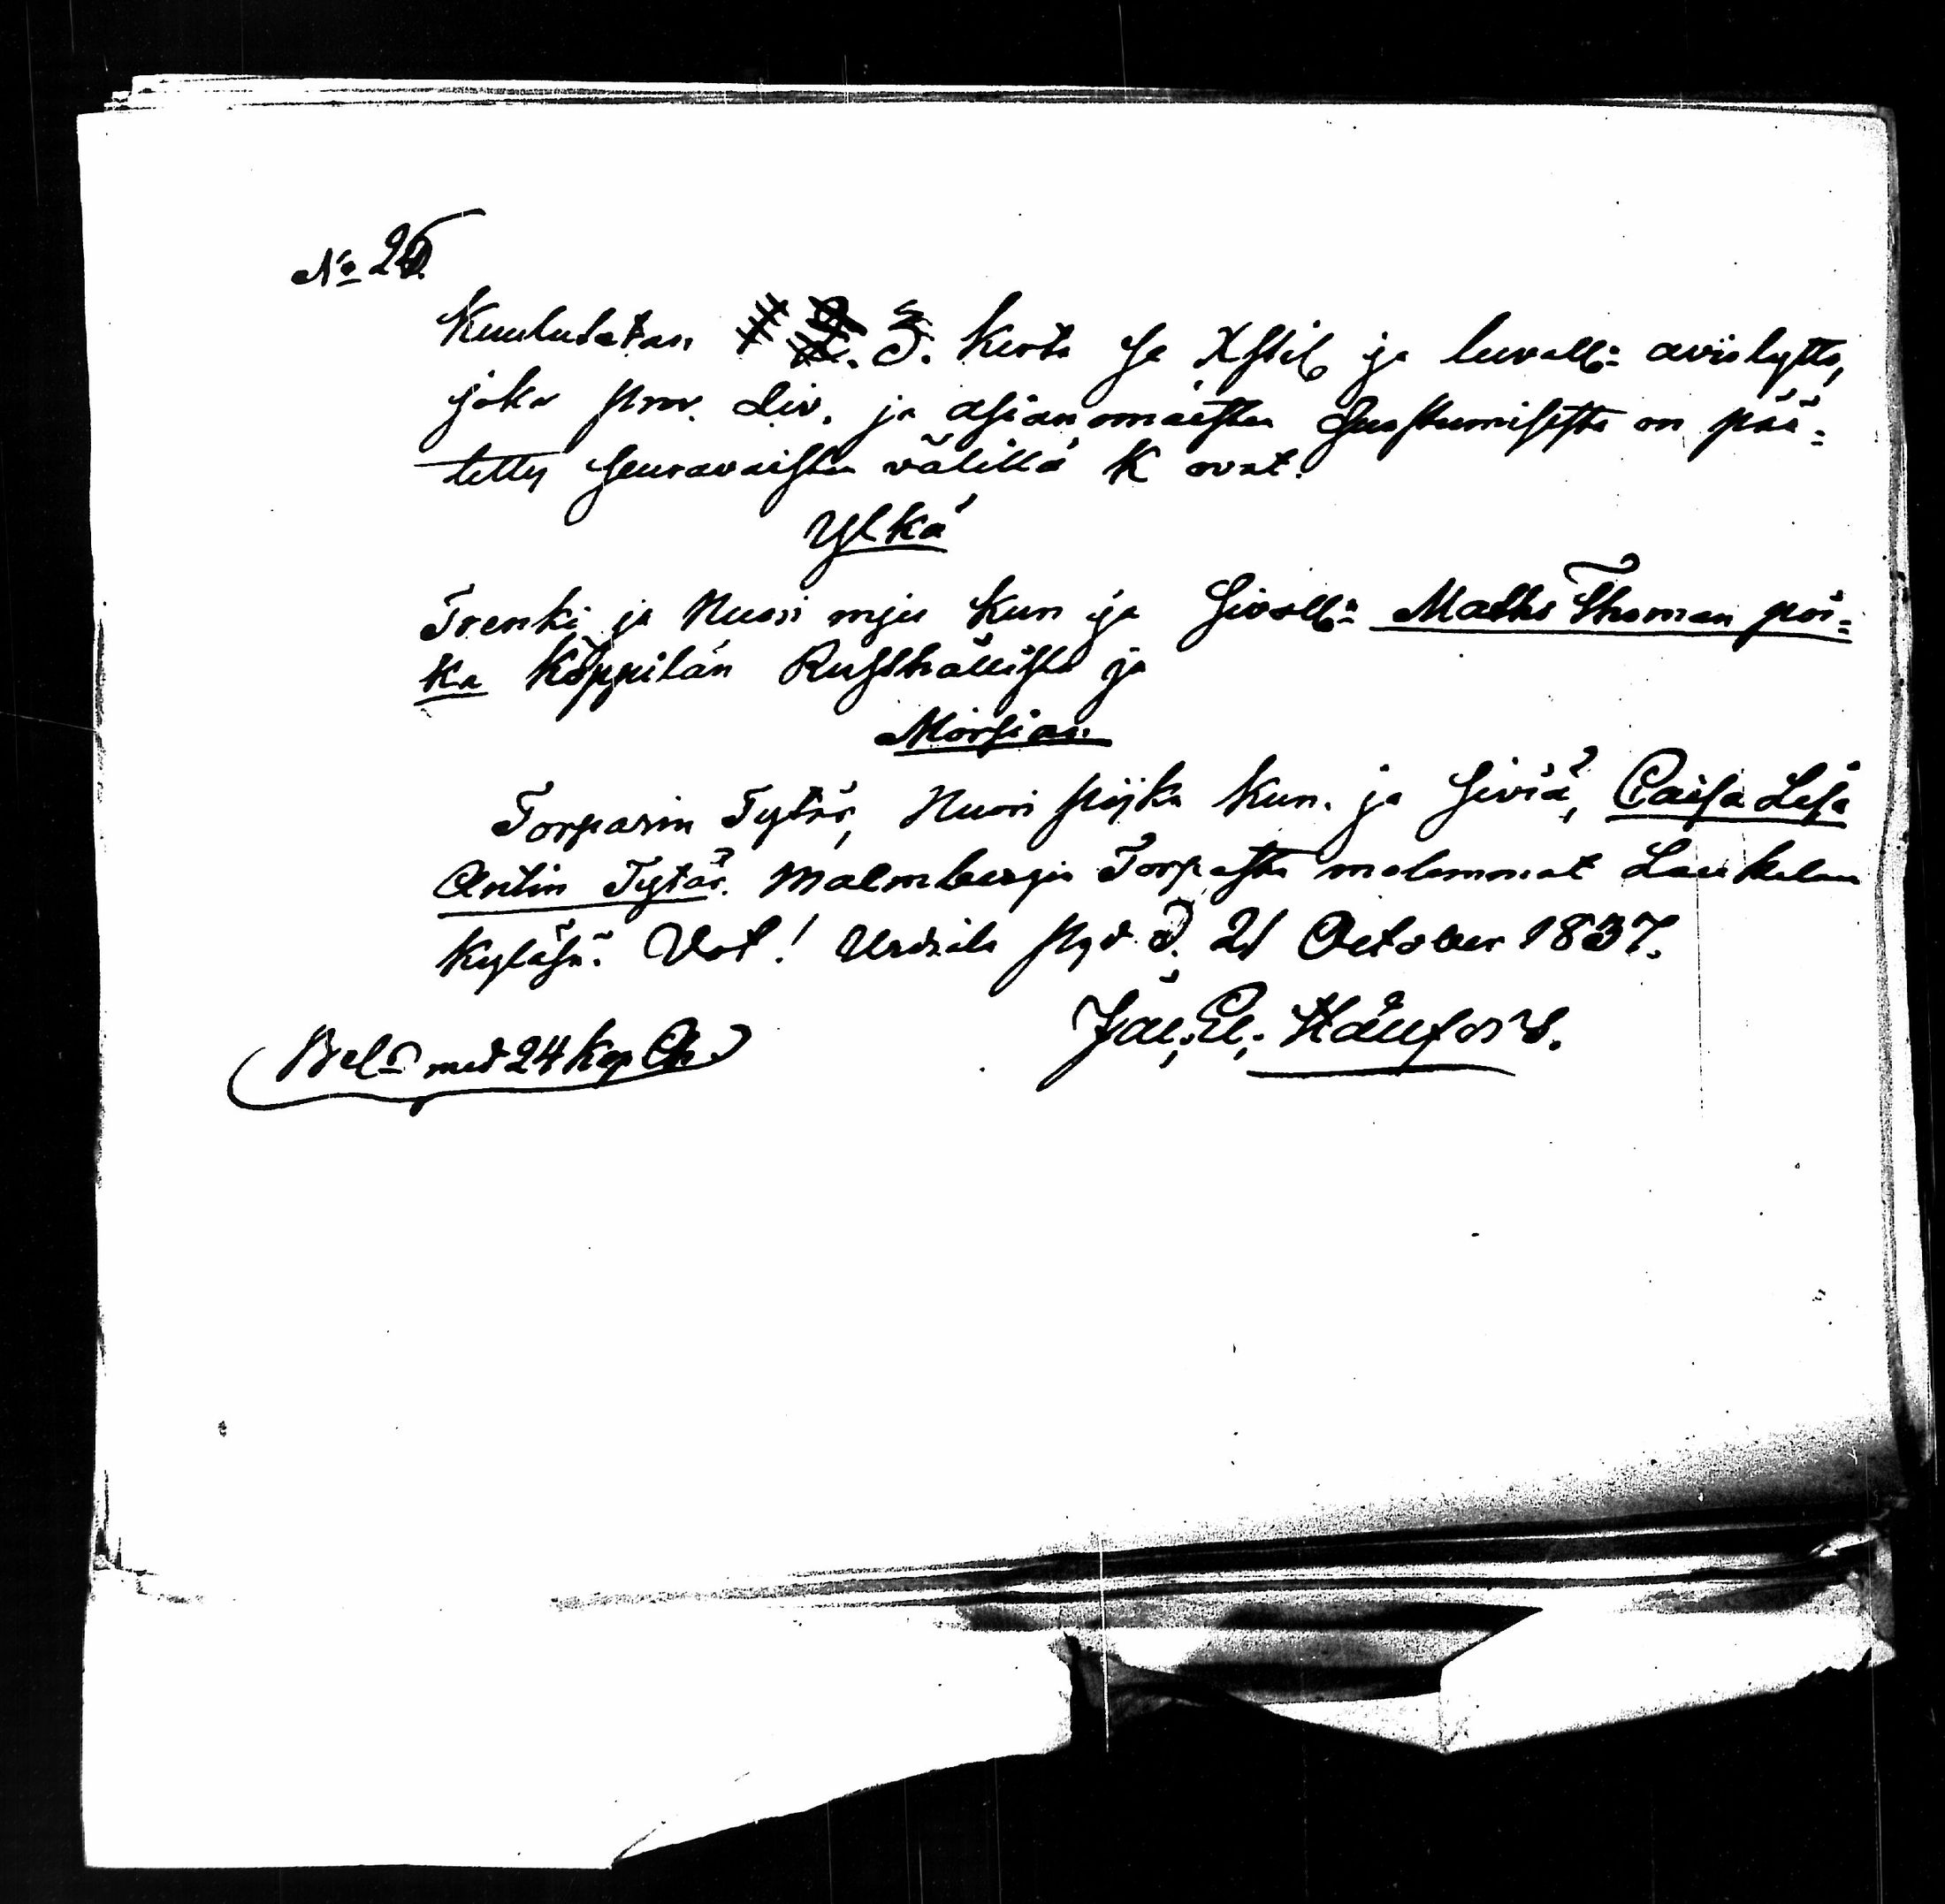 No 25
Kuulutetan 3. kerta ja Xstil ja luvall: avioliytto,
joka prov. div. ja asianomaisten suostumisesta on pää=
tetty seuravaisten välillä K ovat.
Ylkä
Trenki ja Nuori mjes Kun ja Sivoll: Matts Thoman poi=
ka Köppilän Rusthållista ja
Morsian
Torparin Tytär, Nuori pijka Kun. ja Siviä, Caisa Lisa
Antin Tytär. Malmbergin Torpasta molemmat Laukelan
Kyläsä. Vot! Urdiala d. 21 October 1837.
Jac. El. Hällfors.
Bel. med 24 Kop